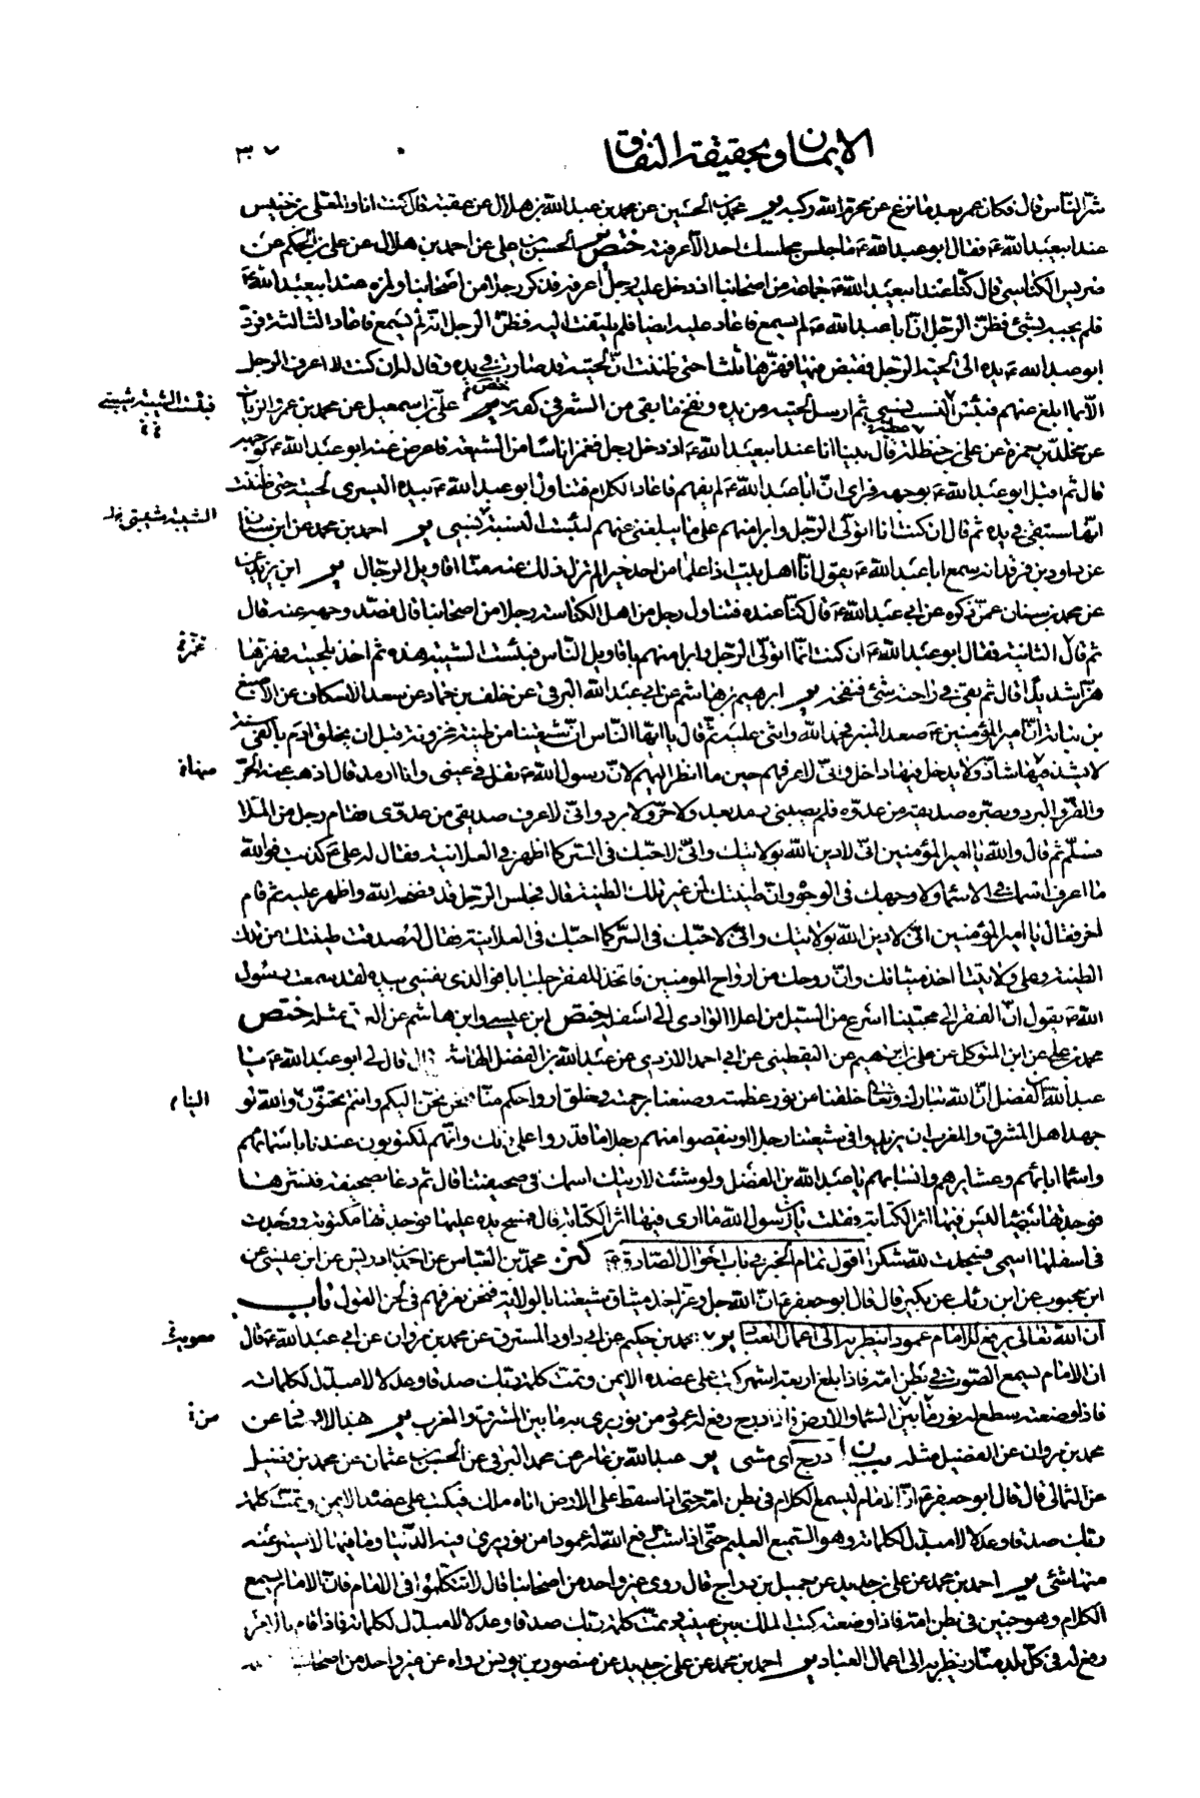 الايمان وبحقيقة النفاق
٣٧
شر الناس قال فكان عمر بعد ما نزع عن محرمة الله ركبه ير محمد بن الحسين عن محمد بن عبد الله بن هلال عن عقبة قال كنت انا والمعلى بن خنيس
عند ابيعبد الله ع فقال ابو عبد الله ع ما جلس مجلسك احد الا عرفته ختص ير الحسين بن علي عن احمد بن هلال عن علي بن الحكم عن
ضريس الكناسي قال كنا عند ابيعبد الله ع جماعة من اصحابنا اذ دخل عليه رجل اعرفه فذكر رجلا من اصحابنا ولمزه عند ابيعبد الله ع
فلم يجبه بشئ فظن الرجل ان ابا عبد الله ع لم يسمع فاعاد عليه ايضا فلم يلتفت اليه فظن الرجل انه لم يسمع فاعاد الثالثة فرد
ابو عبد الله ع يده الى لحية الرجل فقبض عليها فهزها ثلثا حتى ظننت ان لحيته قد صارت في يده وقال له ان كنت لا اعرف الرجل
الا بما ابلغ عنهم فبئس النسب نسبي ثم ارسل لحيته من يده ونفخ ما بقي من الشعر في كفه ير ختص علي بن اسمعيل عن محمد بن عمرو الزيات
فبئست الشيبة شيبتي
عن بن حمزة عن علي بن حنظلة قال بينا انا عند ابيعبد الله ع اذ دخل رجل فغمز اناسا من الشيعة فاعرض عنه ابو عبد الله ع بوجهه
قال ثم اقبل ابو عبد الله ع بوجهه فراى ان ابا عبد الله ع لم يفهم فاعاد الكلام فتناول ابو عبد الله ع بيده اليسرى لحيته حتى ظننت
انها ستبقى في يده ثم قال ان كنت انا اتولى الرجل وابرا منهم على ما يبلغني عنهم لبئست النسبة نسبتي ير احمد بن محمد عن ابن سنان
الشيبة شيبتي خ ل
عن داود بن فرقد انه سمع ابا عبد الله ع يقول انا اهل بيت اذا علمنا من احد خيرا لم تزل ذلك عنه منا اقاويل الرجال ير ابن يزيد عن
عن محمد بن سنان عمن ذكره عن ابي عبد الله ع قال كنا عنده فتناول رجل من اهل الكناسة رجلا من اصحابنا قال فصد وجهه عنه قال
ثم قال الثانية فقال ابو عبد الله ع ان كنت انما اتولى الرجل وابرا منهم باقاويل الناس فبئست الشيبة هذه ثم اخذ بلحيته فهزها
هزا شديدا قال ثم بقي في راحته شئ فنفخه ير ابرهيم بن هاشم عن ابي عبد الله البرقي عن خلف بن حماد عن سعد الاسكاف عن الاصبغ
بن نباتة ان امير المؤمنين ع صعد المنبر فحمد الله واثنى عليه ثم قال يا ايها الناس ان شيعتنا من طينة مخزونة قبل ان يخلق ادم بالفي سنة
لا يشذ منها شاذ ولا يدخل فيها داخل واني لاعرفهم حين ما انظر اليهم لان رسول الله ص تفل في عيني وانا ارمد قال اذهب عنه الحر
والقر والبرد وبصره صديقه من عدوه فلم يصبني رمد بعد ولا حر ولا برد واني لاعرف صديقي من عدوي فقام رجل من الملا
فسلم ثم قال والله يا امير المؤمنين اني لادين الله بولايتك واني لاحبك في السر كما اظهر في العلانية فقال له علي ع كذبت فوالله
ما اعرف اسمك في الاسماء ولا وجهك في الوجوه وان طينتك لمن غير تلك الطينة قال فجلس الرجل قد فضحه الله واظهر عليه ثم قام
اخر فقال يا امير المؤمنين اني لادين الله بولايتك واني لاحبك في السر كما احبك في العلانية فقال له صدقت طينتك من تلك
الطينة وعلى ولايتنا اخذ ميثاقك وان روحك من ارواح المومنين فاتخذ للفقر جلبابا فوالذي نفسي بيده لقد سمعت رسول
الله ص يقول ان الفقر الى محبينا اسرع من السيل من اعلا الوادي الى اسفله ختص ابن عيسى وابن هاشم عن مثله ختص
محمد بن علي عن ابن المتوكل عن علي بن ابرهيم عن اليقطيني عن ابي احمد الازدي عن عبد الله بن الفضل الهاشمي قال قال لي ابو عبد الله ع يا
عبد الله بن الفضل ان الله تبارك وتعالى خلقنا من نور عظمته وصنعنا برحمته وخلق ارواحكم منا فنحن نحن اليكم وانتم تحنون والله لو
الينا م
جهد اهل المشرق والمغرب ان يزيدوا في شيعتنا رجلا او ينقصوا منهم رجلا ما قدروا على ذلك وانهم لمكتوبون عندنا باسمائهم
واسماء ابائهم وعشايرهم وانسابهم يا عبد الله بن الفضل ولو شئت لاريتك اسمك في صحيفتنا قال ثم دعا بصحيفة فنشرها
فوجدتها بيضا ليس فيها اثر الكتابة فقلت يا بن رسول الله ما ارى فيها اثر الكتابة قال فمسح يده عليها فوجدتها مكتوبة ووجدت
في اسفلها اسمي فسجدت لله شكرا اقول تمام الخبر في باب احوال الصادق ع كنز محمد بن العباس عن احمد بن ادريس عن ابن عيسى عن
ابن محبوب عن ابن رئاب عن بكير قال قال ابو جعفر ع ان الله جل وعز اخذ ميثاق شيعتنا بالولاية فنحن نعرفهم في لحن القول باب
ان الله تعالى يرفع للامام عمودا ينظر به الى اعمال العباد ير محمد بن حكيم عن ابي داود المسترق عن محمد بن مروان عن ابي عبد الله ع قال
ان الامام يسمع الصوت في بطن امه فاذا بلغ اربعة اشهر كتب على عضده الايمن وتمت كلمة ربك صدقا وعدلا لا مبدل لكلماته
فاذا وضعته سطع له نور ما بين السماء والارض فاذا درج رفع له عمود من نور يرى به ما بين المشرق والمغرب ير عن
محمد بن مروان عن الفضيل مثله بيان درج اي مشى ير عبد الله بن عامر عن محمد البرقي عن الحسين بن عثمان عن محمد بن فضيل
عن الثمالي قال قال ابو جعفر ع ان الامام ليسمع الكلام في بطن امه حتى اذا سقط على الارض اتاه ملك فيكتب على عضده الايمن وتمت كلمة
ربك صدقا وعدلا لا مبدل لكلماته وهو السميع العليم حتى اذا شب رفع الله له عمودا من نور يرى فيه الدنيا وما فيها لا يستر عنه
منها شئ ير احمد بن محمد عن علي بن حديد عن جميل بن دراج قال روى غير واحد من اصحابنا قال لا تتكلموا في الامام فان الامام يسمع
الكلام وهو جنين في بطن امه فاذا وضعته كتب الملك بين عينيه وتمت كلمة ربك صدقا وعدلا لا مبدل لكلماته فاذا قام بالامر
رفع له في كل بلد منار ينظر به الى اعمال العباد ير احمد بن محمد عن علي بن حديد عن منصور بن يونس رواه عن غير واحد من اصحابنا